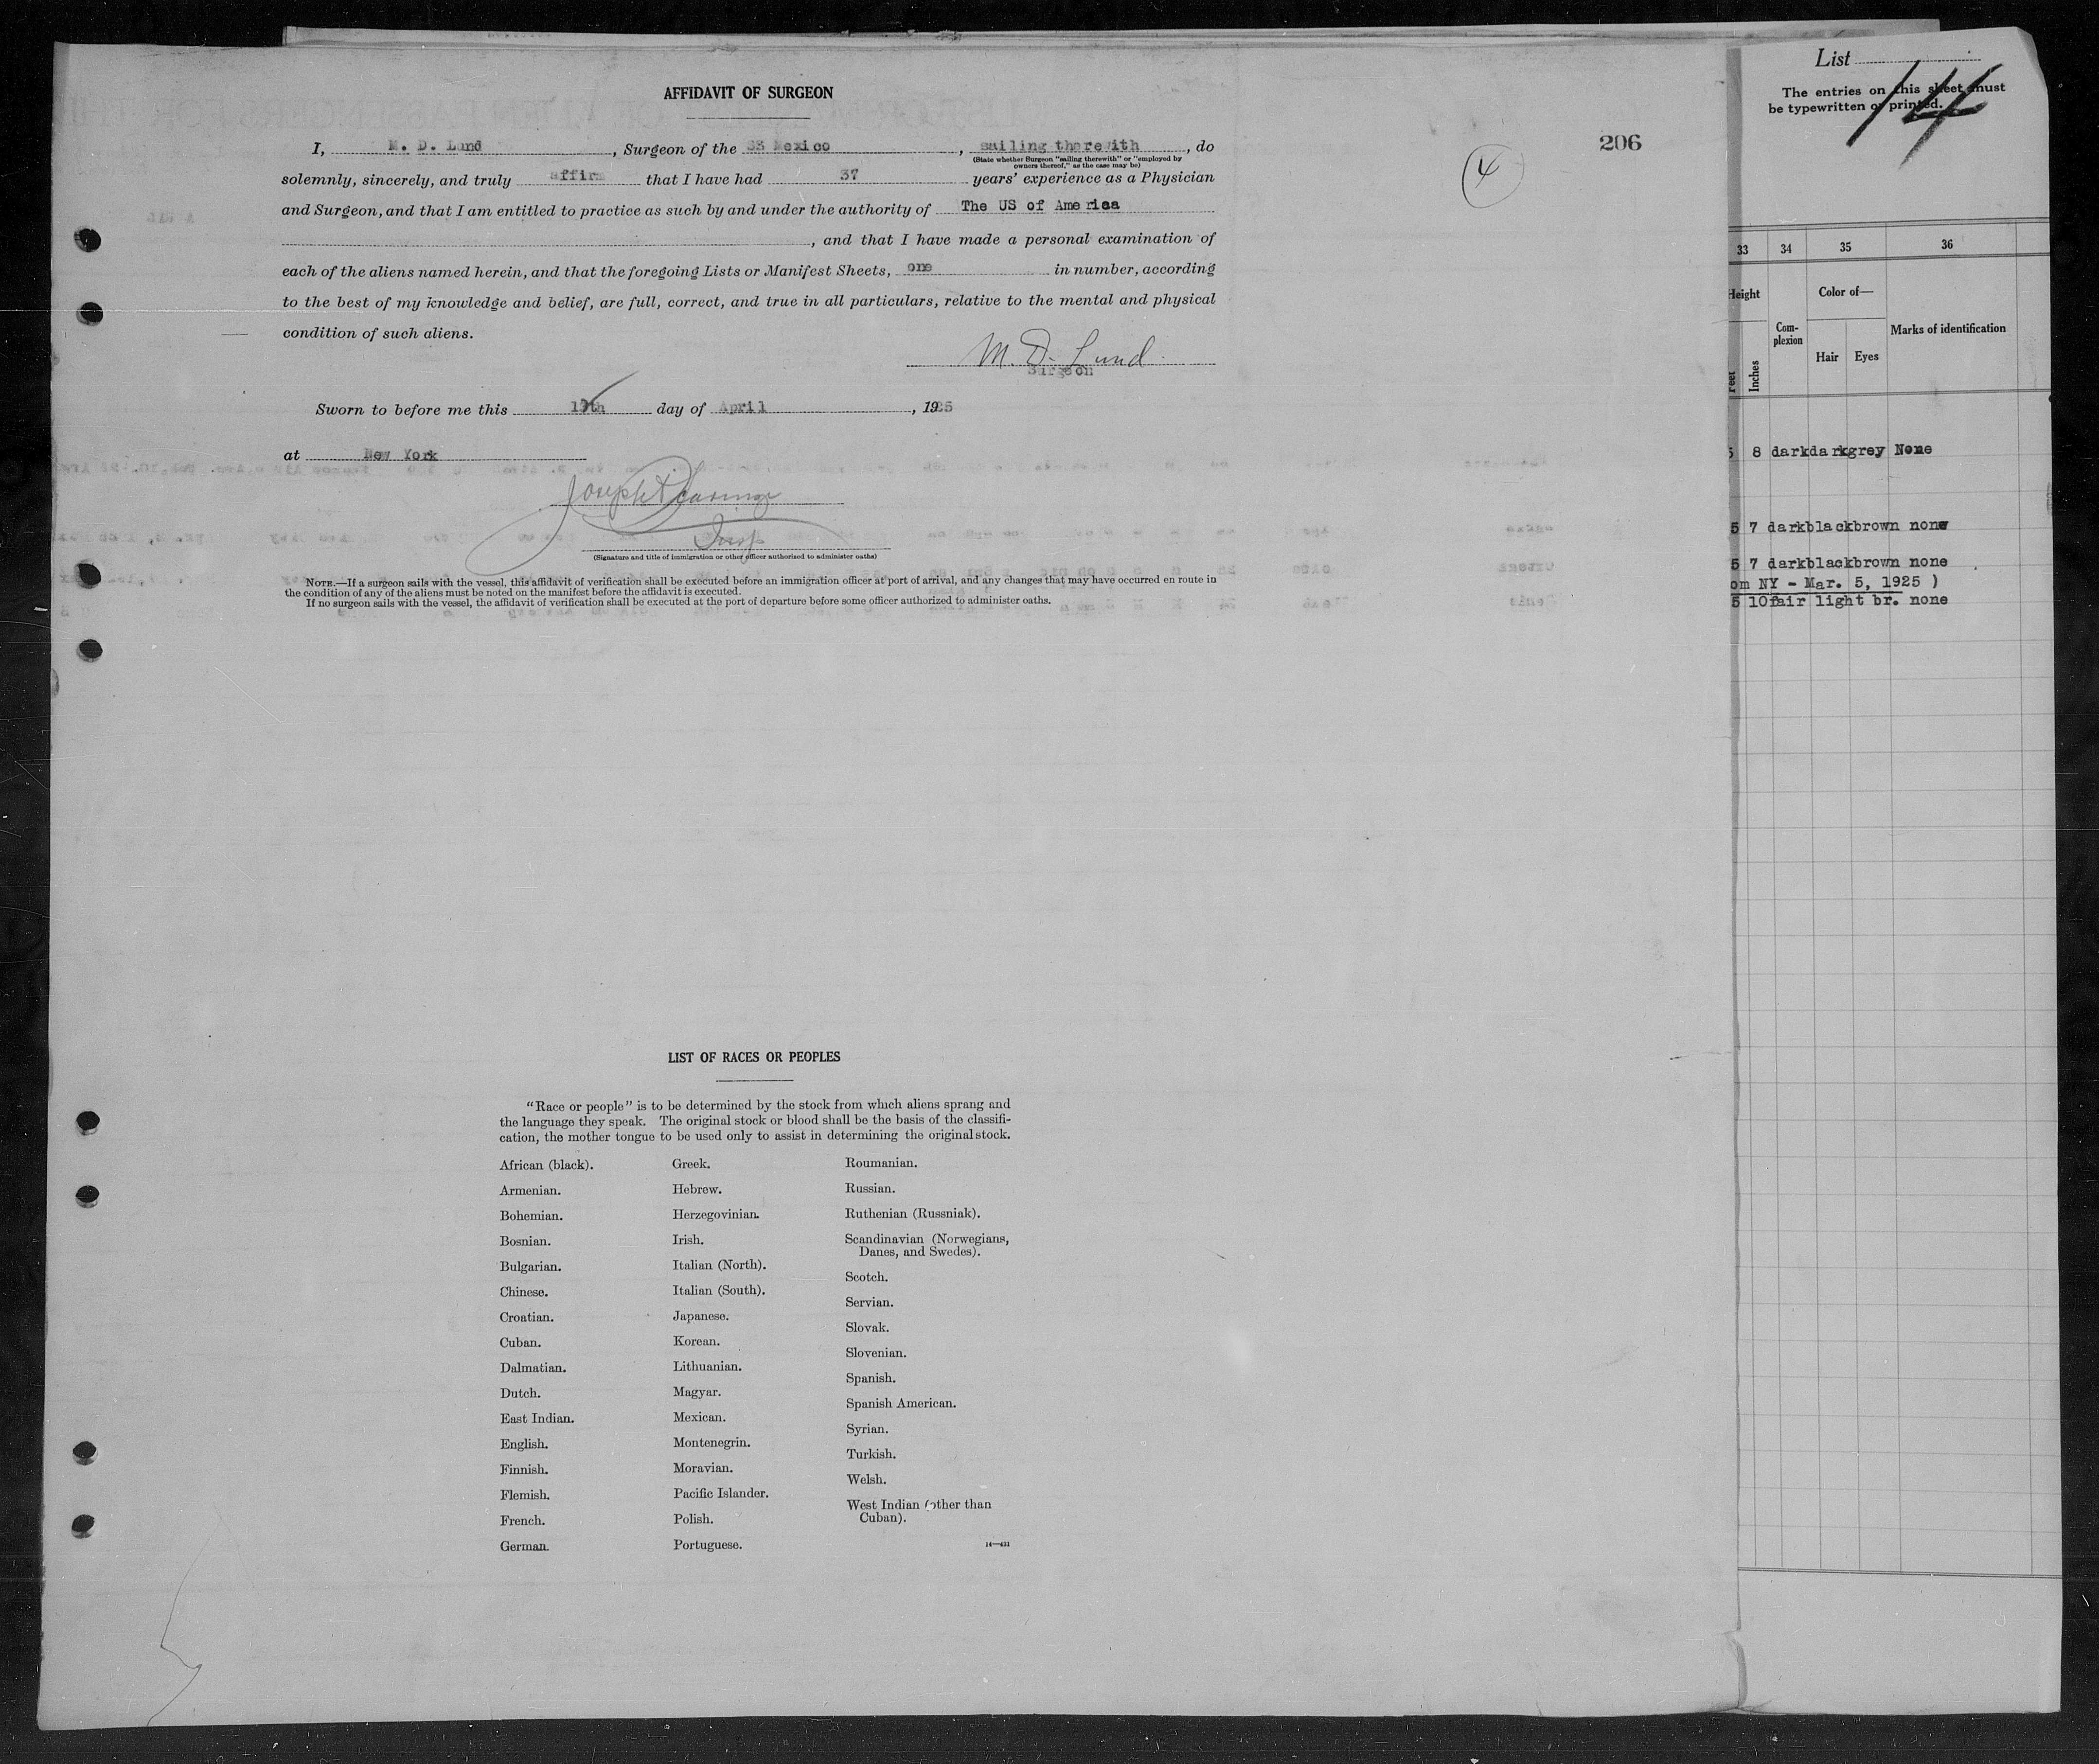 AFFIDAVIT OF SURGEON
206
4
I, M. D. Lund, Surgeon of the SS Mexico, sailing therewith, do
(State whether Surgeon "sailing therewith" or "employed by
owners thereof," as the case may be)
solemnly, sincerely, and truly affirm that I have had 37 years' experience as a Physician
and Surgeon, and that I am entitled to practice as such by and under the authority of The US of America
, and that I have made a personal examination of
each of the aliens named herein, and that the foregoing Lists or Manifest Sheets, one in number, according
to the best of my knowledge and belief, are full, correct, and true in all particulars, relative to the mental and physical
condition of such aliens.
M. D. Lund
Surgeon
Sworn to before me this day of April, 1925
at New York
Joseph
Insp
(Signature and title of immigration or other officer authorized to administer oaths)
NOTE.—If a surgeon sails with the vessel, this affidavit of verification shall be executed before an immigration officer at port of arrival, and any changes that may have occurred en route in
the condition of any of the aliens must be noted on the manifest before the affidavit is executed.
If no surgeon sails with the vessel, the affidavit of verification shall be executed at the port of departure before some officer authorized to administer oaths.
LIST OF RACES OR PEOPLES
"Race or people" is to be determined by the stock from which aliens sprang and
the language they speak. The original stock or blood shall be the basis of the classifi-
cation, the mother tongue to be used only to assist in determining the original stock.
African (black).
Armenian.
Bohemian.
Bosnian.
Bulgarian.
Chinese.
Croatian.
Cuban.
Dalmatian.
Dutch.
East Indian.
English.
Finnish.
Flemish.
French.
German.
Greek.
Hebrew.
Herzegovinian.
Irish.
Italian (North).
Italian (South).
Japanese.
Korean.
Lithuanian.
Magyar.
Mexican.
Montenegrin.
Moravian.
Pacific Islander.
Polish.
Portuguese.
Roumanian.
Russian.
Ruthenian (Russniak).
Scandinavian (Norwegians,
Danes, and Swedes).
Scotch.
Servian.
Slovak.
Slovenian.
Spanish.
Spanish American.
Syrian.
Turkish.
Welsh.
West Indian (other than
Cuban).
14—431
List 14
The entries on this sheet must
be typewritten or printed.
33 34 35 36
Height
Com-
plexion
Color of—
Marks of identification
Feet
Inches
Hair
Eyes
5 8 dark dark grey None
5 7 dark black brown none
5 7 dark black brown none
om NY - Mar. 5, 1925 )
5 10 fair light br. none